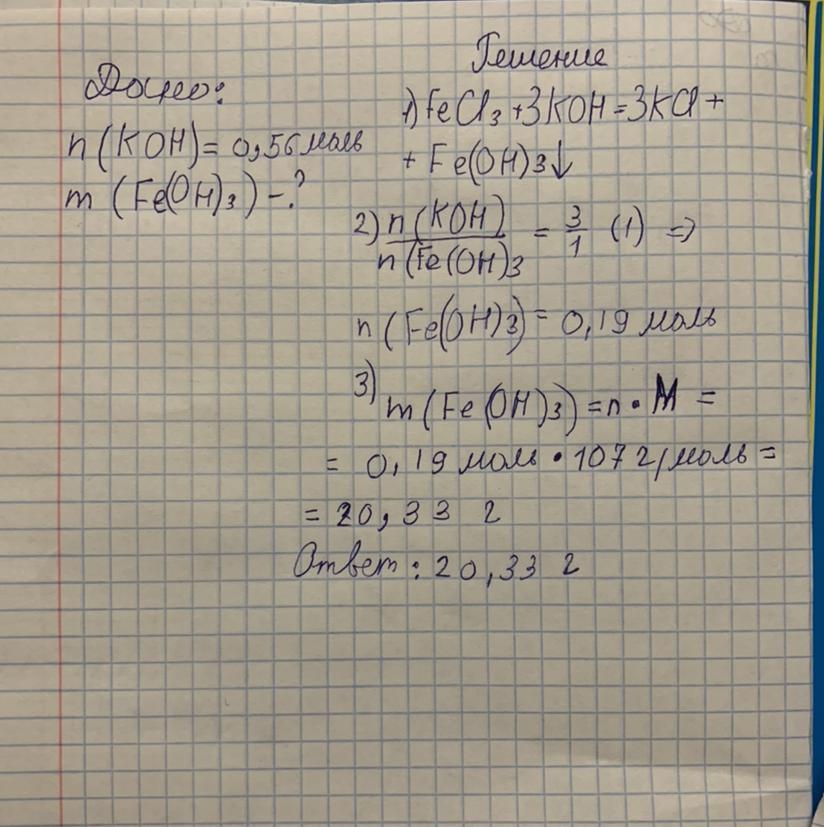 Дано:
n (KOH) = 0,56 моль
m (Fe(OH)3) - ?
Решение
1) FeCl3 + 3KOH = 3KCl +
+ Fe(OH)3↓
2) n(KOH) / n(Fe(OH)3 = 3/1 (1) =>
n (Fe(OH)3) = 0,19 моль
3) m (Fe(OH)3) = n • M =
= 0,19 моль • 107 г/моль =
= 20,33 г
Ответ: 20,33 г